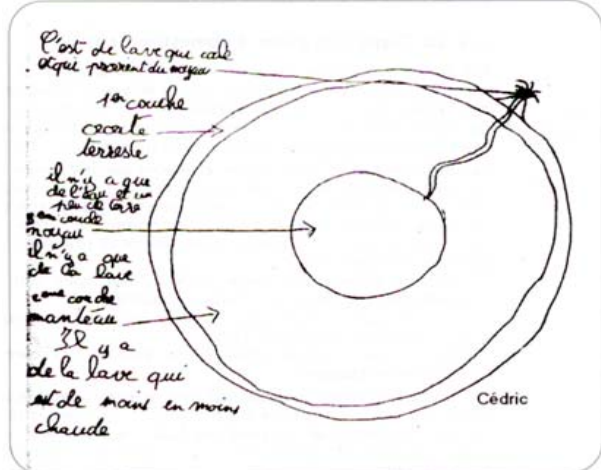 C'est de lave qui cale
et qui provient du noyau
1er couche
ceorte
terreste
il n'y a que
de l'eau et un
peu de terre
3em couche
noyau
il n'y a que
de la lave
2eme couche
manteau
Il y a
de la lave qui
est de moins en moins
chaude
Cédric